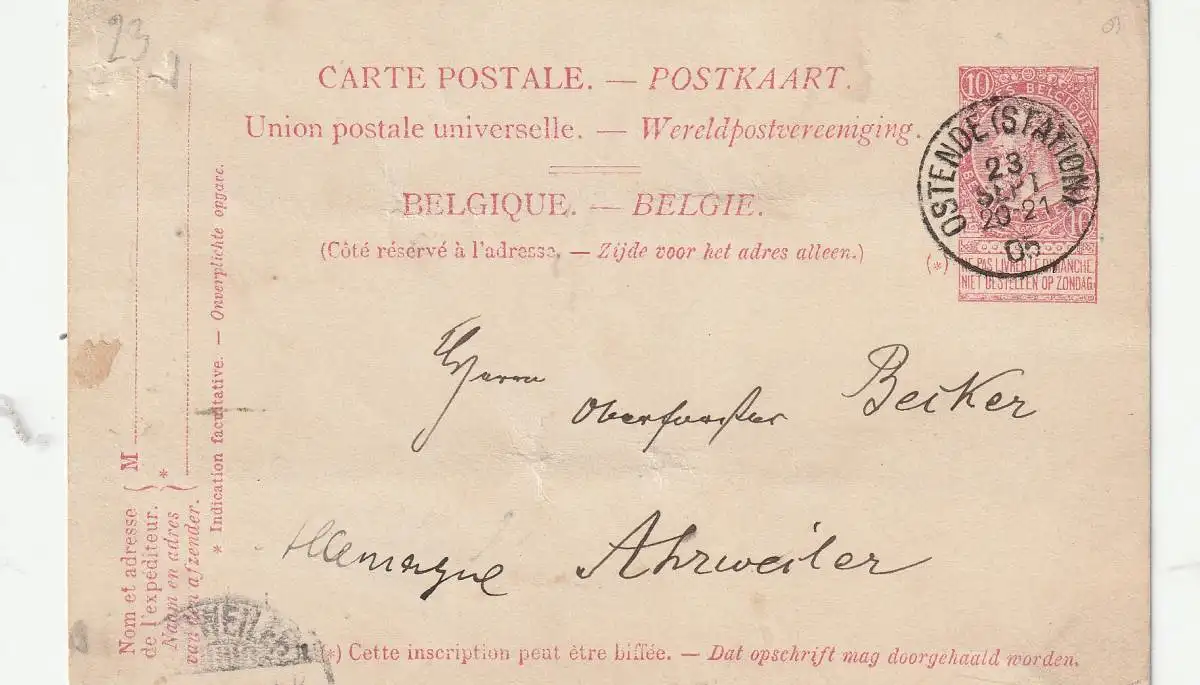 23
CARTE POSTALE. — POSTKAART.
Union postale universelle. — Wereldpostvereeniging.
BELGIQUE. — BELGIE.
(Côté réservé à l'adresse. — Zijde voor het adres alleen.)
10
BELGIQUE
10
OSTENDE (STATION)
23
SEPT
20-21
05
(*)
NE PAS LIVRER LE DIMANCHE
NIET BESTELLEN OP ZONDAG
Herrn
Oberförster Becker
Allemagne Ahrweiler
M
*
Nom et adresse
de l'expéditeur.
Naam en adres
van den afzender.
* Indication facultative. — Onverplichte opgave.
(*) Cette inscription peut être biffée. — Dat opschrift mag doorgehaald worden.